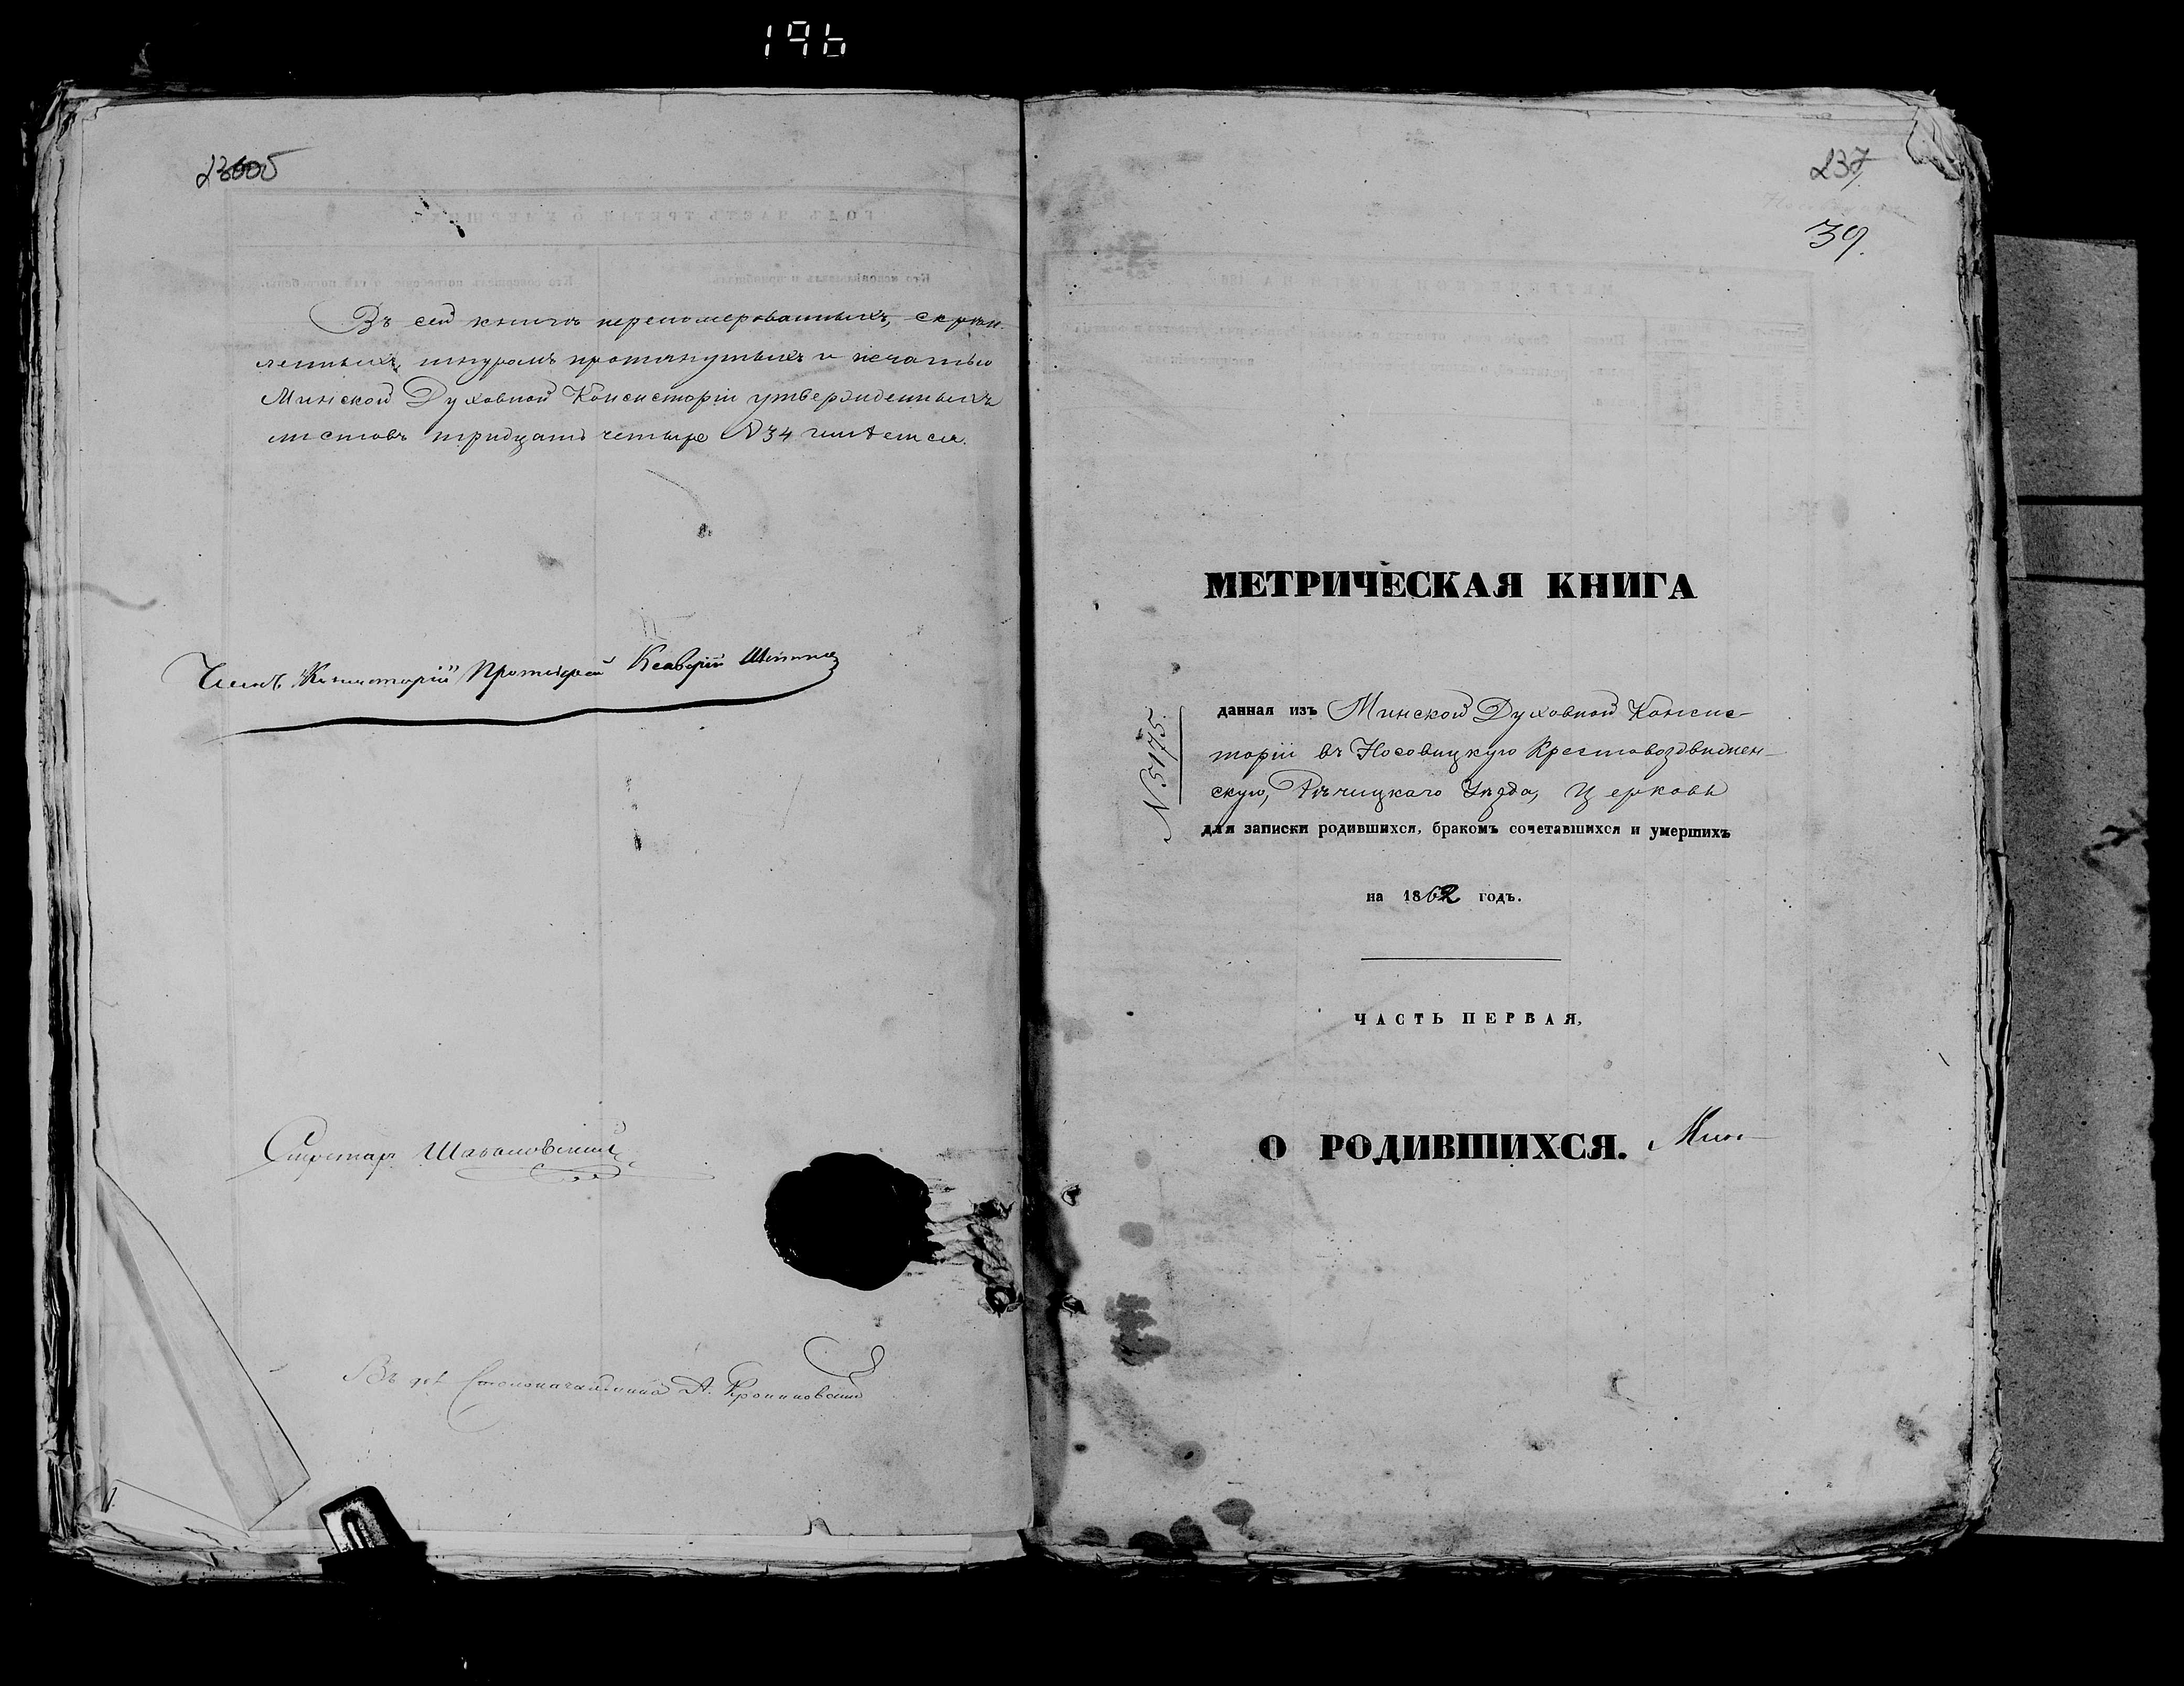 196
236об
Въ сей книгѣ перенумерованныхъ, скрѣп-
ленныхъ, шнуромъ протянутыхъ и печатью
Минской Духовной Консисторіи утвержденныхъ
листовъ тридцать четыре № 34 имѣется.
Членъ Консисторіи Протоіерей
Секретарь
Въ Столоначальника А.
237
39.
МЕТРИЧЕСКАЯ КНИГА
№ 5175.
данная изъ Минской Духовной Консис-
торіи въ Носовицкую Крестовоздвижен-
скую, Рѣчицкаго Уѣзда, Церковь
для записки родившихся, бракомъ сочетавшихся и умершихъ
на 1862 годъ.
ЧАСТЬ ПЕРВАЯ,
О РОДИВШИХСЯ. Мин-